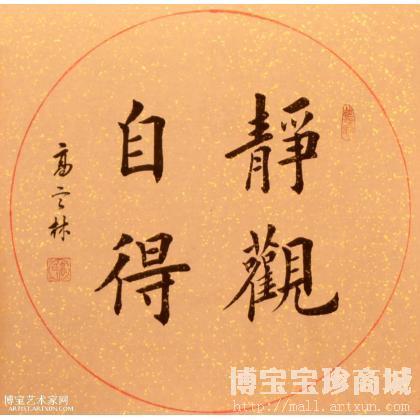 靜觀
自得
高云林
博宝艺术家网
ARTIST.ARTXUN.COM
博宝宝珍商城
http://mall.artxun.com